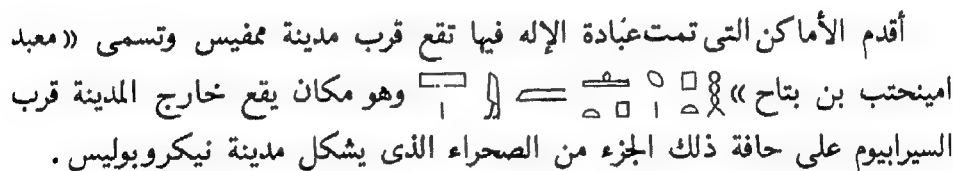 أقدم الأماكن التى تمت عبادة الإله فيها تقع قرب مدينة ممفيس وتسمى «معبد
امينحتب بن بتاح» وهو مكان يقع خارج المدينة قرب
السيرابيوم على حافة ذلك الجزء من الصحراء الذى يشكل مدينة نيكروبوليس.